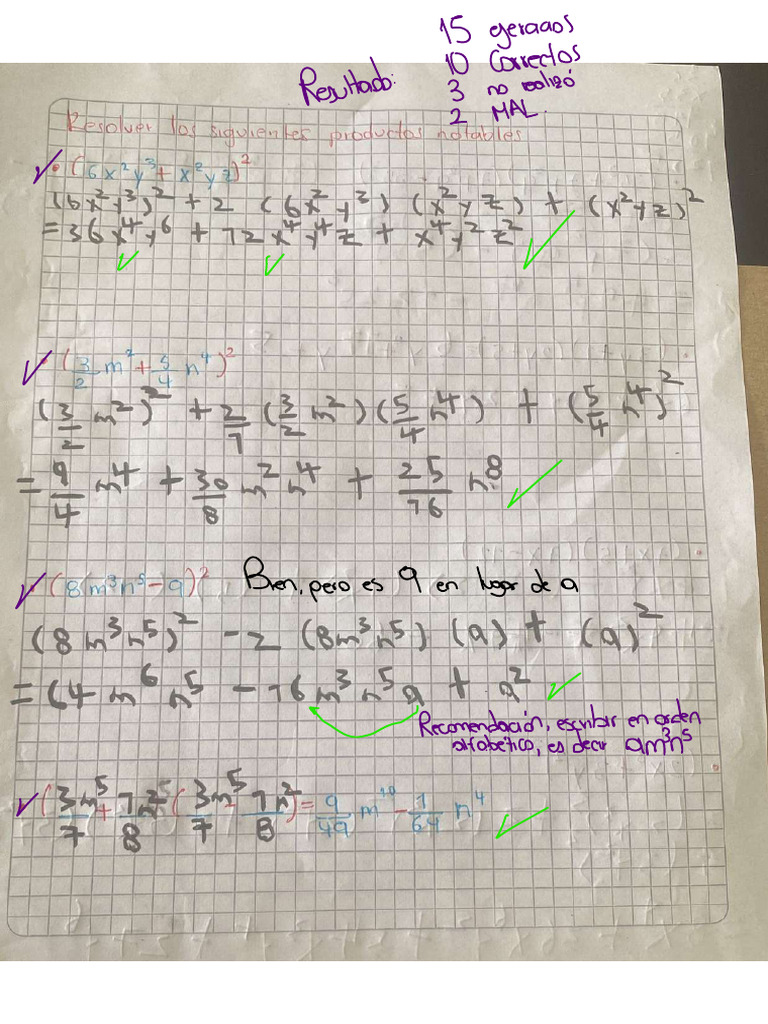 15 ejercicios
10 Correctos
Resultado: 3 no realizó
2 MAL.
Resolver los siguientes productos notables
✓ • (6x²y³+x²yz)²
(6x²y³)² + 2 (6x²y³) (x²yz) + (x²yz)²
= 36x⁴y⁶ + 12x⁴y⁴z + x⁴y²z²
✓ ✓ ✓
✓ • (3/2 m² + 5/4 n⁴)²
(3/2 m²)² + 2/1 (3/2 m²) (5/4 n⁴) + (5/4 n⁴)²
= 9/4 m⁴ + 30/8 m² n⁴ + 25/16 n⁸ ✓
✓ (8m³n⁵-9)² Bien, pero es 9 en lugar de a
(8m³n⁵)² - 2 (8m³n⁵) (a) + (a)²
= 64 m⁶ n⁵ - 16 m³ n⁵ a + a² ✓
Recomendación, escribir en orden
alfabético, es decir am³n⁵
✓ (3m⁵/7 + 1n²/8) (3m⁵/7 - 1n²/8) = 9/49 m¹⁰ - 1/64 n⁴ ✓